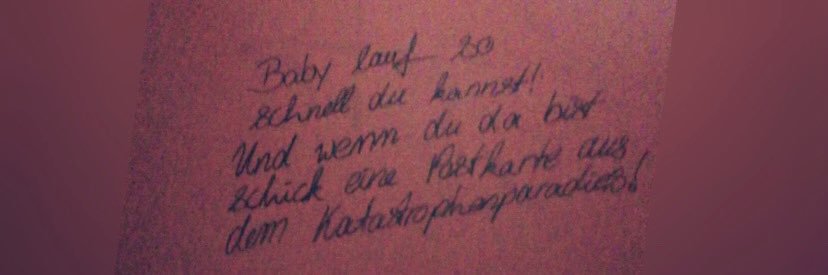 Baby lauf so
schnell du kannst!
Und wenn du da bist
schick eine Postkarte aus
dem Katastrophenparadies!